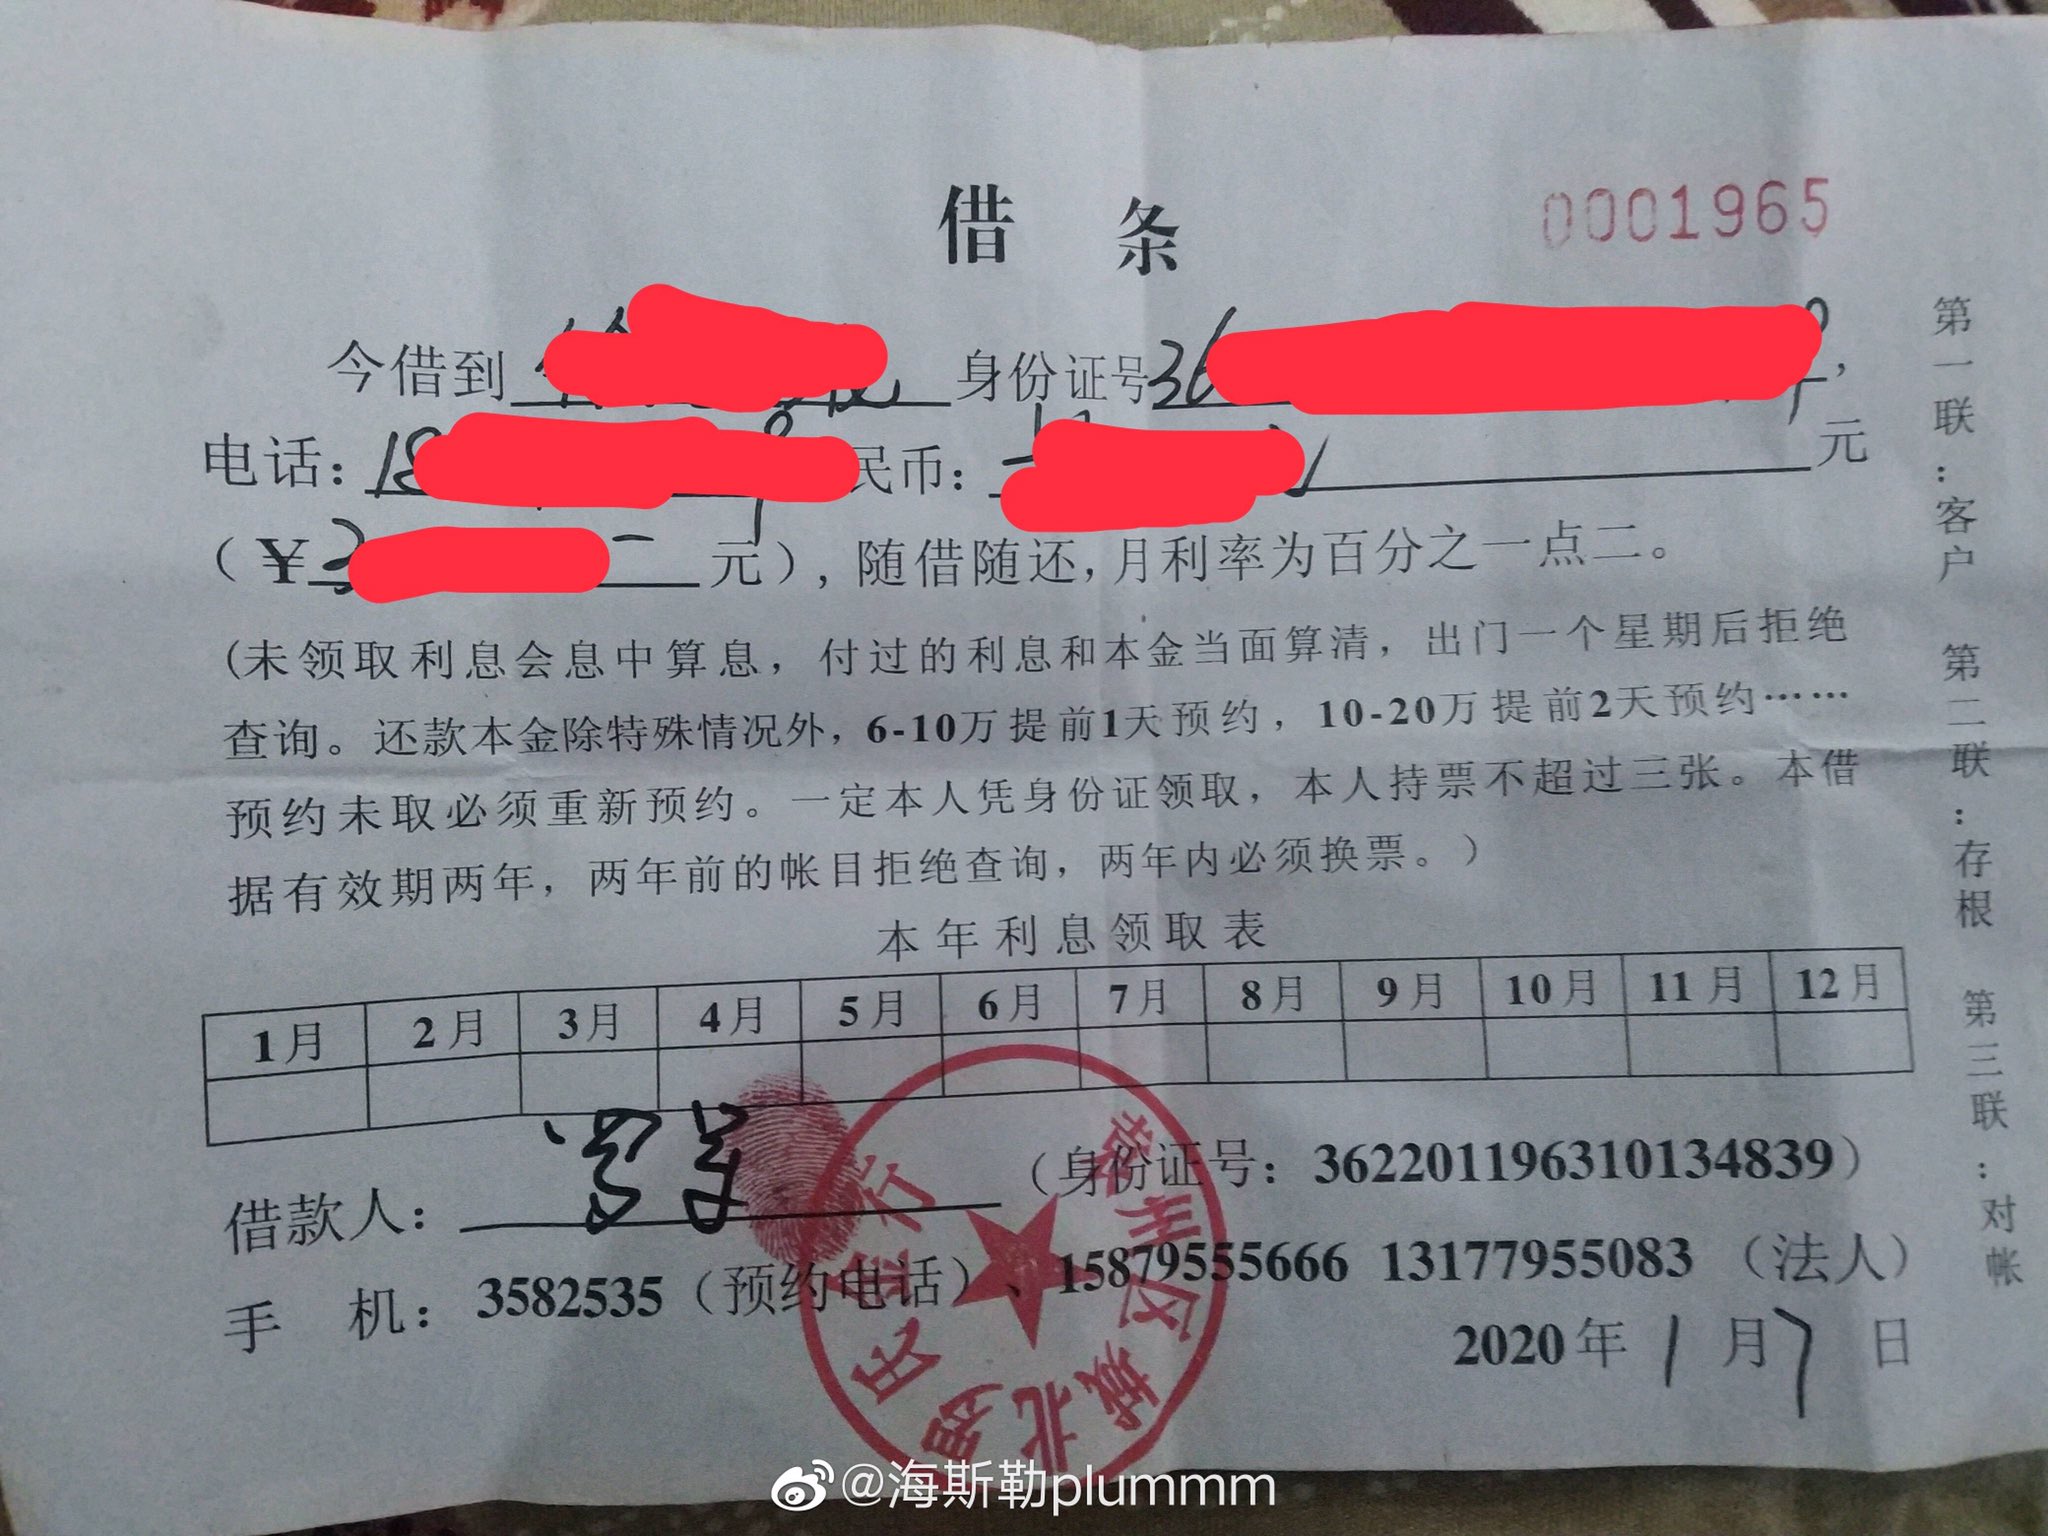 借 条
0001965
今借到 身份证号36 ，
电话：18 民币： 元
（¥3 元），随借随还，月利率为百分之一点二。
(未领取利息会息中算息，付过的利息和本金当面算清，出门一个星期后拒绝
查询。还款本金除特殊情况外，6-10万提前1天预约，10-20万提前2天预约……
预约未取必须重新预约。一定本人凭身份证领取，本人持票不超过三张。本借
据有效期两年，两年前的帐目拒绝查询，两年内必须换票。）
本年利息领取表
1月 2月 3月 4月 5月 6月 7月 8月 9月 10月 11月 12月
借款人： （身份证号：362201196310134839）
手 机：3582535（预约电话）、15879555666 13177955083 （法人）
2020年1月7日
第一联：客户 第二联：存根 第三联：对帐
州区城北
@海斯勒plummm